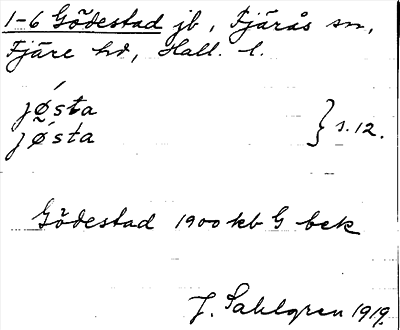 1-6 Gödestad jb, Fjärås sn,
Fjäre hd, Hall. l.
jǿsta
jǿ̰sta } s. 12.
Gödestad 1900 kb G bek
J. Sahlgren 1919.